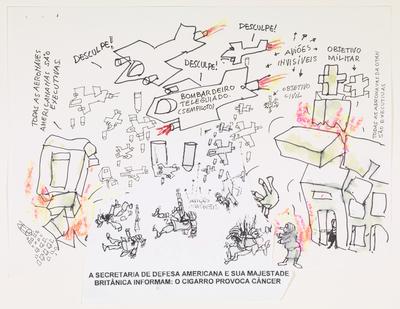 DESCULPE!!
DESCULPE!
DESCULPE!
AVIÕES
INVISÍVEIS
OBJETIVO
MILITAR
OBJETIVO
CIVIL
BOMBARDEIRO
TELEGUIADO.
(SEM PILOTO)
TODAS AS AERONAVES
AMERICANAS SÃO
EXECUTIVAS.
TODAS AS AERONAVES DA OTAN
SÃO EXECUTIVAS
A SECRETARIA DE DEFESA AMERICANA E SUA MAJESTADE
BRITÂNICA INFORMAM: O CIGARRO PROVOCA CÂNCER